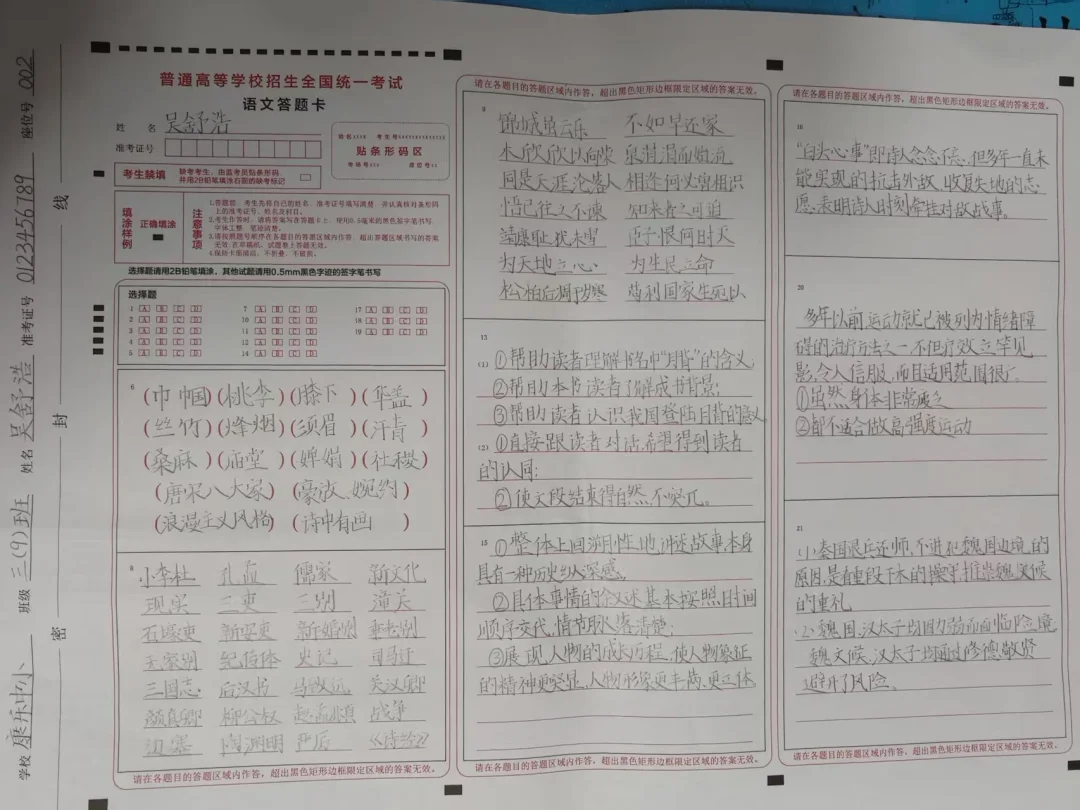 学校 康乐中心 班级 三(9)班 姓名 吴舒浩 准考证号 0123456789 座位号 002
密 封 线
普通高等学校招生全国统一考试
语文答题卡
姓 名 吴舒浩
准考证号
贴条形码区
考生禁填
缺考考生,由监考员贴条形码,
并用2B铅笔填涂右面的缺考标记
填涂样例
正确填涂
注意事项
1.答题前,考生先将自己的姓名、准考证号填写清楚,并认真核对条形码
上的准考证号、姓名及科目。
选择题请用2B铅笔填涂,其他试题请用0.5mm黑色字迹的签字笔书写
选择题
1 A B C D 7 A B C D 17 A B C D
2 A B C D 10 A B C D 18 A B C D
3 A B C D 11 A B C D 19 A B C D
4 A B C D 12 A B C D
5 A B C D 14 A B C D
6
(巾帼)(桃李)(膝下)(华盖)
(丝竹)(烽烟)(须眉)(汗青)
(桑麻)(庙堂)(婵娟)(社稷)
(唐宋八大家) (豪放、婉约)
(浪漫主义风格) (诗中有画)
小李杜 孔孟 儒家 新文化
现实 三吏 三别 潼关
石壕吏 新安吏 新婚别 垂老别
无家别 纪传体 史记 司马迁
三国志 后汉书 马致远 关汉卿
颜真卿 柳公权 赵孟頫 战争
边塞 陶渊明 《诗经》
请在各题目的答题区域内作答,超出黑色矩形边框限定区域的答案无效。
请在各题目的答题区域内作答,超出黑色矩形边框限定区域的答案无效。
9
锦城虽云乐 不如早还家
木欣欣以向荣 泉涓涓而始流
同是天涯沦落人 相逢何必曾相识
悟已往之不谏 知来者之可追
靖康耻犹未雪 臣子恨何时灭
为天地立心 为生民立命
松柏后凋于岁寒 苟利国家生死以
13
(1) ①帮助读者理解书名中“月背”的含义;
②帮助本书读者了解成书背景;
③帮助读者认识我国登陆月背的意义
(2) ①直接跟读者对话,希望得到读者
的认同;
②使文段结束得自然,不突兀。
15 ①整体上回溯性地讲述故事,本身
具有一种历史纵深感。
②具体事情的叙述基本按照时间
顺序交代,情节脉络清楚;
③展现人物的成长历程,使人物象征
的精神更坚显,人物形象更丰满、更立体
请在各题目的答题区域内作答,超出黑色矩形边框限定区域的答案无效。
请在各题目的答题区域内作答,超出黑色矩形边框限定区域的答案无效。
16
“白头心事”即诗人念念不忘,但多年一直未
能实现的抗击外敌、收复失地的志
愿,表明诗人时刻牵挂对敌战事。
20
多年以前,运动就已被列为情绪障
碍的治疗方法之一,不但疗效立竿见
影,令人信服,而且适用范围很广。
①虽然身体非常疲乏
②都不适合做高强度运动
21
(1)秦国退兵还师,不进犯魏国边境,的
原因,是看重段干木的操守,推崇魏文侯
的重礼
(2)魏国、汉太子均因力弱而面临险境
魏文侯、汉太子均通过修德敬贤
避开了风险。
请在各题目的答题区域内作答,超出黑色矩形边框限定区域的答案无效。